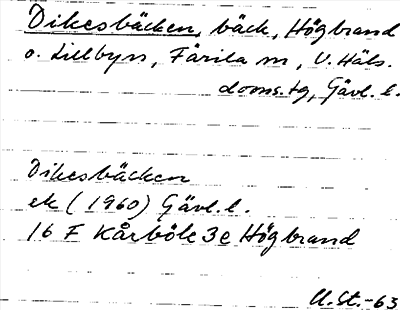 Dikesbäcken, bäck, Högbrand
o. Lillbyn, Färila sn, V. Häls.
doms.tg, Gävl. l.
Dikesbäcken
ek (1960) Gävl. l.
16 F Kårböle 3e Högbrand
U.St.-63